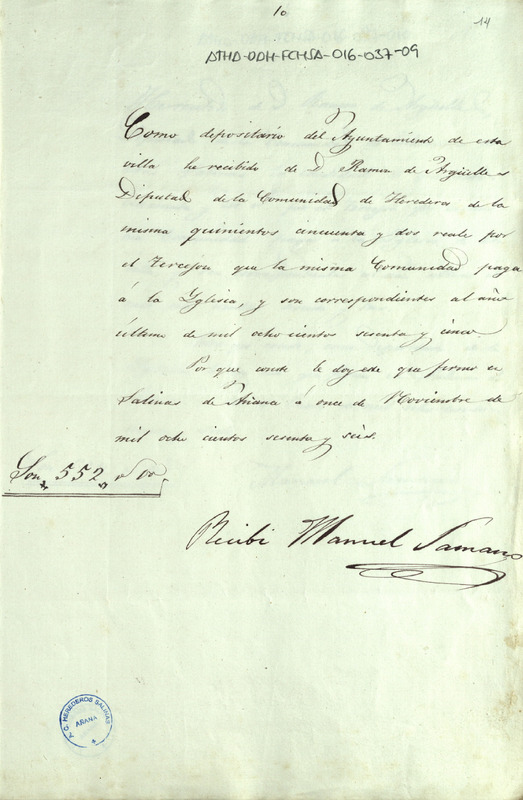 10
14
ATHA-DAH-FCHSA-016-037-09
Como depositario del Ayuntamiento de esta
villa he recibido de D. Ramon de Argüelles
Diputad de la Comunidad de Herederos de la
misma quinientos cincuenta y dos reales por
el Tercejon que la misma Comunidad paga
á la Yglesia, y son correspondientes al año
último de mil ocho cientos sesenta y cinco.
Por que conste le doy este que firmo en
Salinas de Añana á once de Noviembre de
mil ocho cientos sesenta y seis.
Son 552 rs vn.
Recibi Manuel Samano
C. HEREDEROS SALINAS
AÑANA